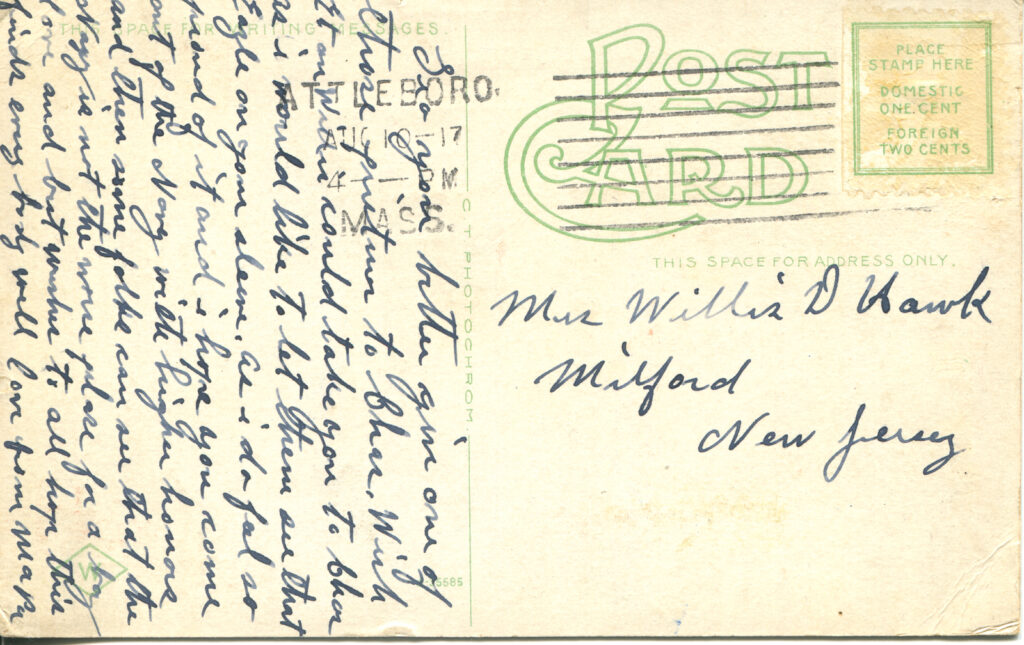 THIS SPACE FOR WRITING MESSAGES.
ATTLEBORO.
AUG 10-17
4 - PM
MASS.
POST
CARD
PLACE
STAMP HERE
DOMESTIC
ONE CENT
FOREIGN
TWO CENTS
THIS SPACE FOR ADDRESS ONLY.
Mrs Willis D Hawk
Milford
New Jersey
C T PHOTOCHROM
So you better give one of
those picture to Char. Wish
it on Wish could take you to Char
as i would like to let them see that
Eagle on your sleeve. as i do feel so
proud of it and i hope you come
out of the Navy with higher honors
and then some folks can see that the
Navy is not the worse place for a boy
love and best wishes to all hope this
finds every body well love from Mapa